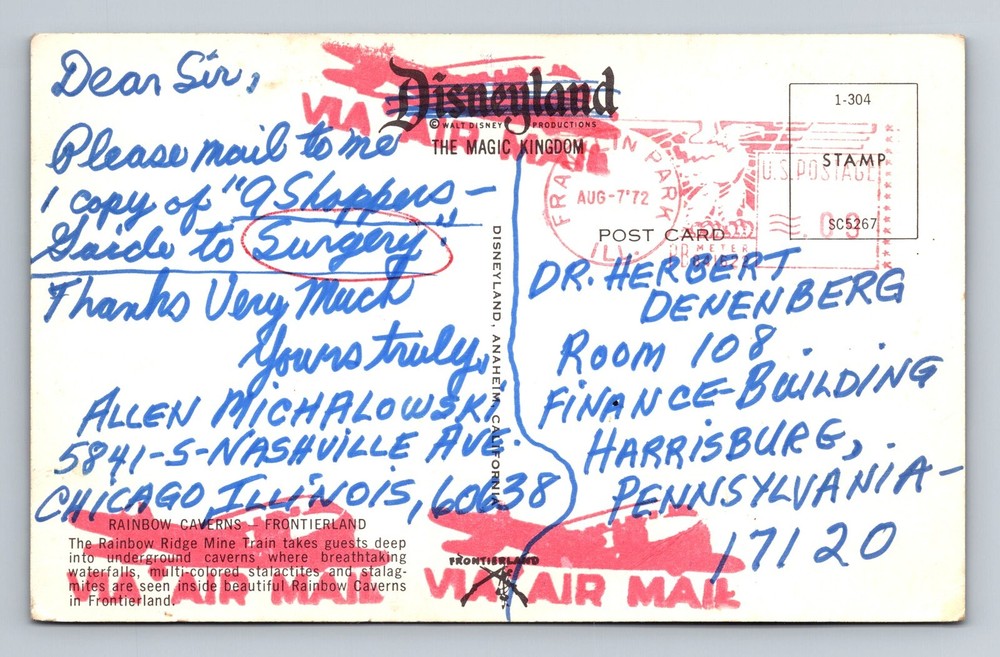 Dear Sir,
Please mail to me
1 copy of "a Shoppers-
Guide to Surgery"
Thanks Very Much
Yours truly,
ALLEN MICHALOWSKI
5841-S-NASHVILLE AVE.
CHICAGO, ILLINOIS, 60638
RAINBOW CAVERNS — FRONTIERLAND
The Rainbow Ridge Mine Train takes guests deep
into underground caverns where breathtaking
waterfalls, multi-colored stalactites and stalag-
mites are seen inside beautiful Rainbow Caverns
in Frontierland.
VIA AIR MAIL
VIA AIR MAIL
Disneyland
© WALT DISNEY PRODUCTIONS
THE MAGIC KINGDOM
DISNEYLAND, ANAHEIM, CALIFORNIA
FRONTIERLAND
VIA AIR MAIL
FRANKLIN PARK
AUG-7'72
ILL.
U.S. POSTAGE
METER
1-304
STAMP
SC5267
POST CARD
DR. HERBERT
DENENBERG
ROOM 108
FINANCE-BUILDING
HARRISBURG,
PENNSYLVANIA-
17120